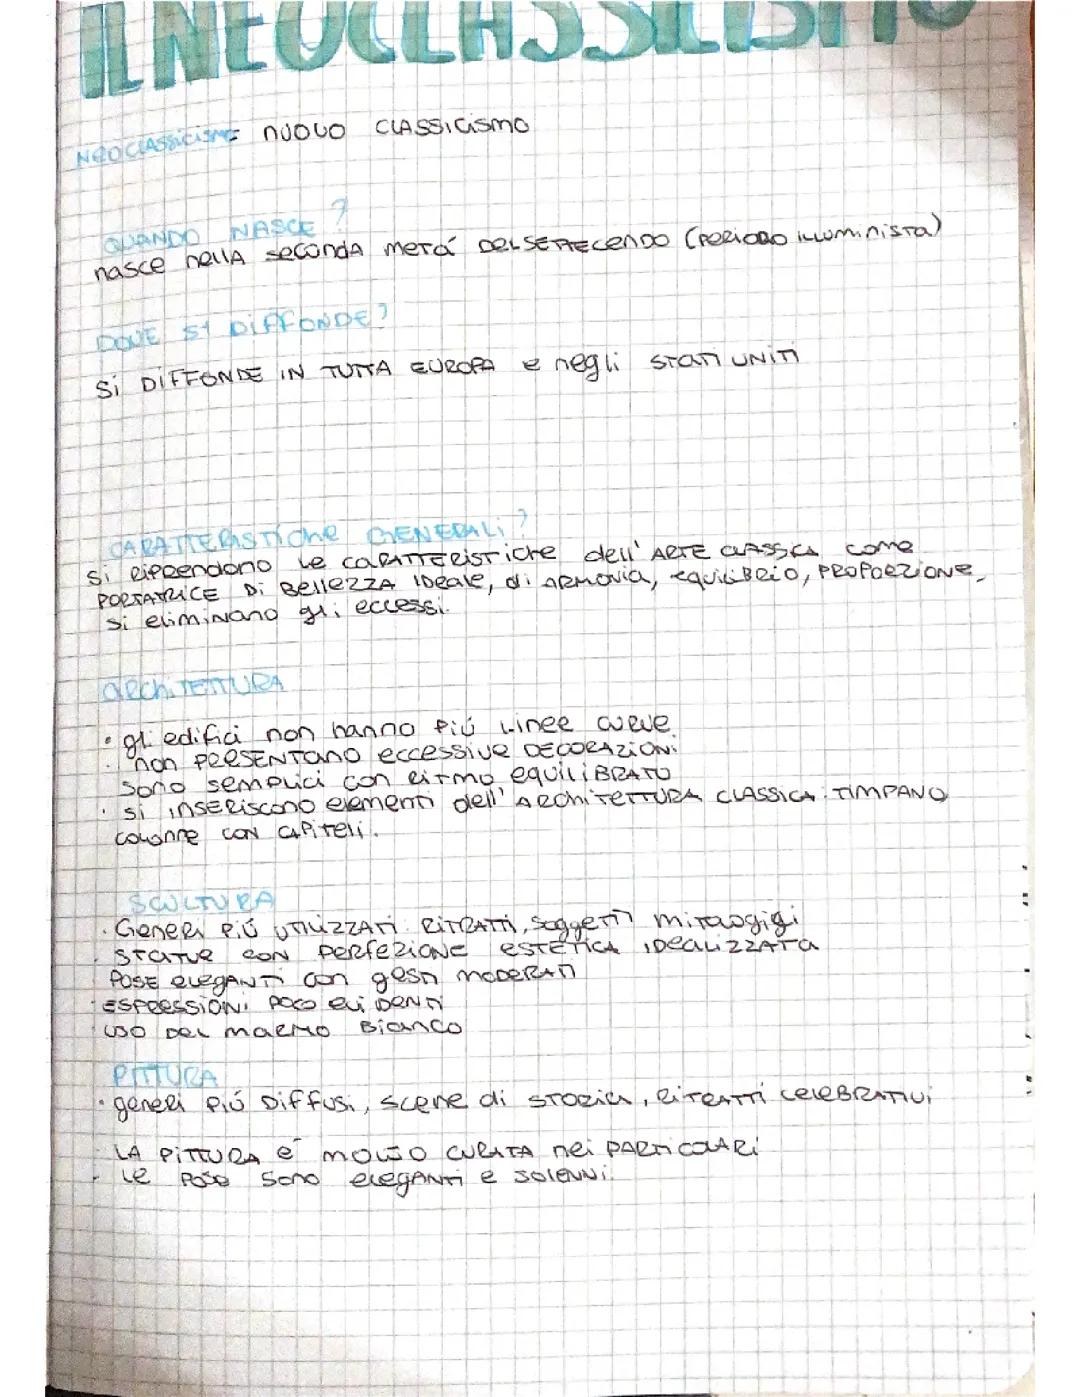 IL NEOCLASSICISMO
NEOCLASSICISMO NUOVO CLASSICISMO
QUANDO NASCE ?
nasce nella seconda metá DEL SETTECENDO (PERIODO ILLUMINISTA)
DOVE SI DIFFONDE?
Si DIFFONDE IN TUTTA EUROPA e negli STATI UNITI
CARATTERISTICHE GENERALI ?
Si riprendono le CARATTERISTICHE dell'ARTE CLASSICA come
PORTATRICE DI BELLEZZA IDeale, di ARMONIA, equiLiBRIO, PROPORZIONE,
si eliminano gli eccessi.
ARCHITETTURA
• gli edifici non hanno piú Linee curve.
• non PRESENTANO eccessive DECORAZIONI
Sono semplici con ritmo equiLiBRATO
• si inseriscono elementi dell'ARCHITETTURA CLASSICA: TIMPANO
colonne con CAPiteli.
SCULTURA
• Generi Piú UTILIZZATI RITRATTI, Soggetti mitologigi
• STATUE CON PERFEZIONE ESTETICA IDEALIZZATA
POSE ELEGANTI con gesti MODERATI
• ESPRESSIONI POCO EVIDENTI
USO DEL MARMO BIANCO
PITTURA
• generi piú Diffusi, scene di STORIA, RITRATTI CELEBRATIVI
LA PITTURA é MOLTO CURATA nei PARTICOLARI
• Le POSE SONO ELEGANTI e SOLENNI.